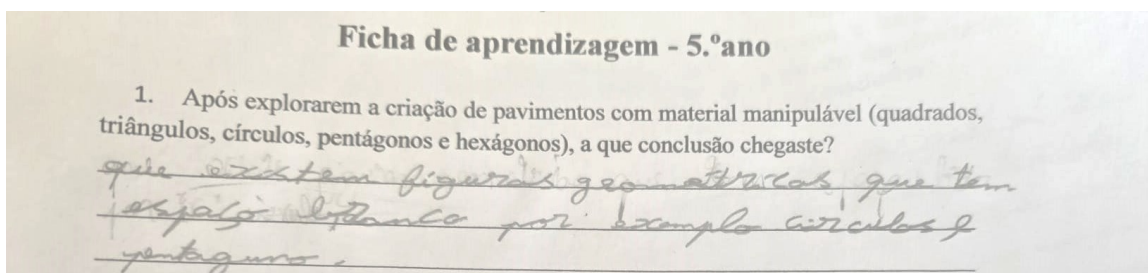 Ficha de aprendizagem - 5.ºano
1. Após explorarem a criação de pavimentos com material manipulável (quadrados,
triângulos, círculos, pentágonos e hexágonos), a que conclusão chegaste?
que existem figuras geomattricas que tem
espaço branco por exemplo circulos e
pentaguno.